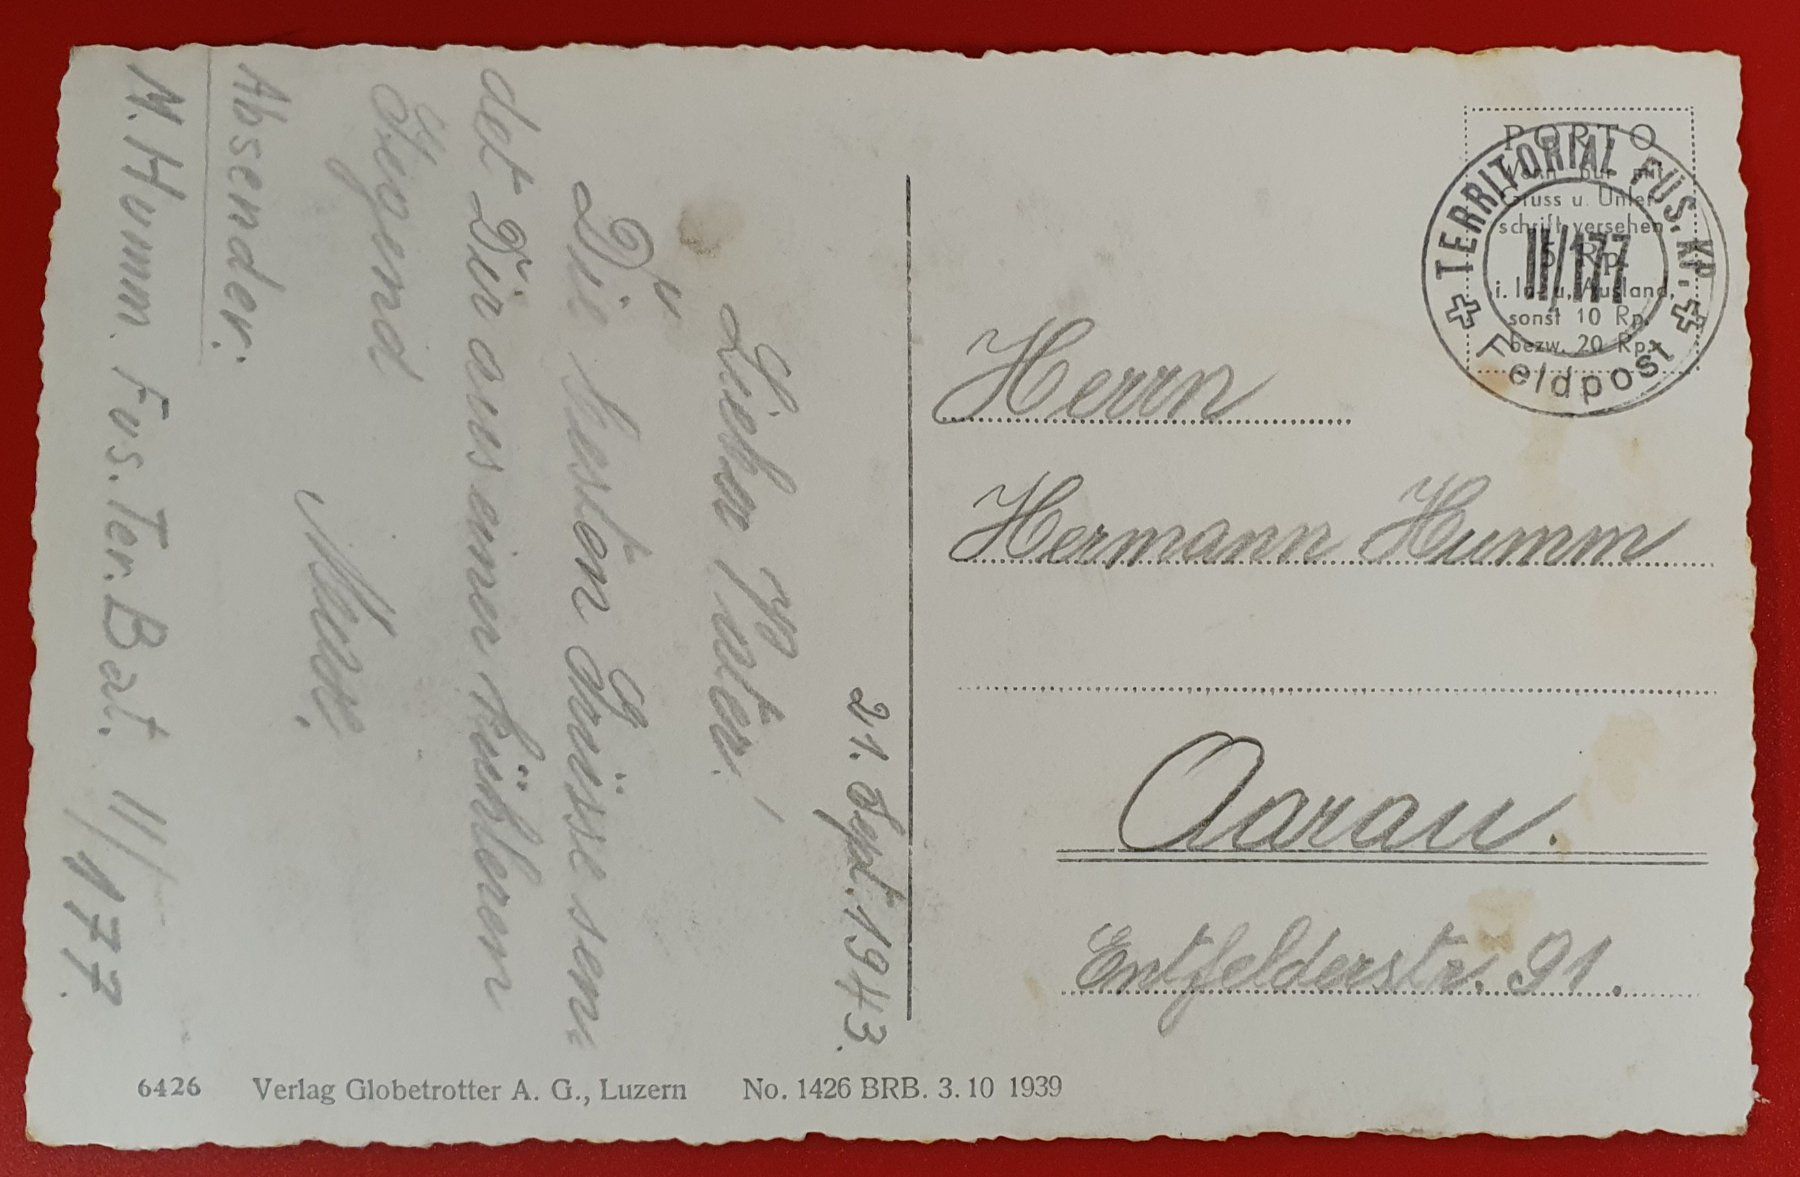 21. Sept. 1943.
Lieber Vater!
Die besten Grüsse sen
det Dir aus einer kühleren
Gegend
Absender:
M. Humm. Fus. Ter. Bat. III/177.
PORTO
wenn nur mit
Gruss u. Unter-
schrift versehen
5 Rp.
i. In- u. Ausland,
sonst 10 Rp.
bezw. 20 Rp.
TERRITORIAL FÜS. KP.
III/177
Feldpost
Herrn
Hermann Humm
Aarau.
Entfelderstr. 91.
6426 Verlag Globetrotter A. G., Luzern No. 1426 BRB. 3. 10 1939